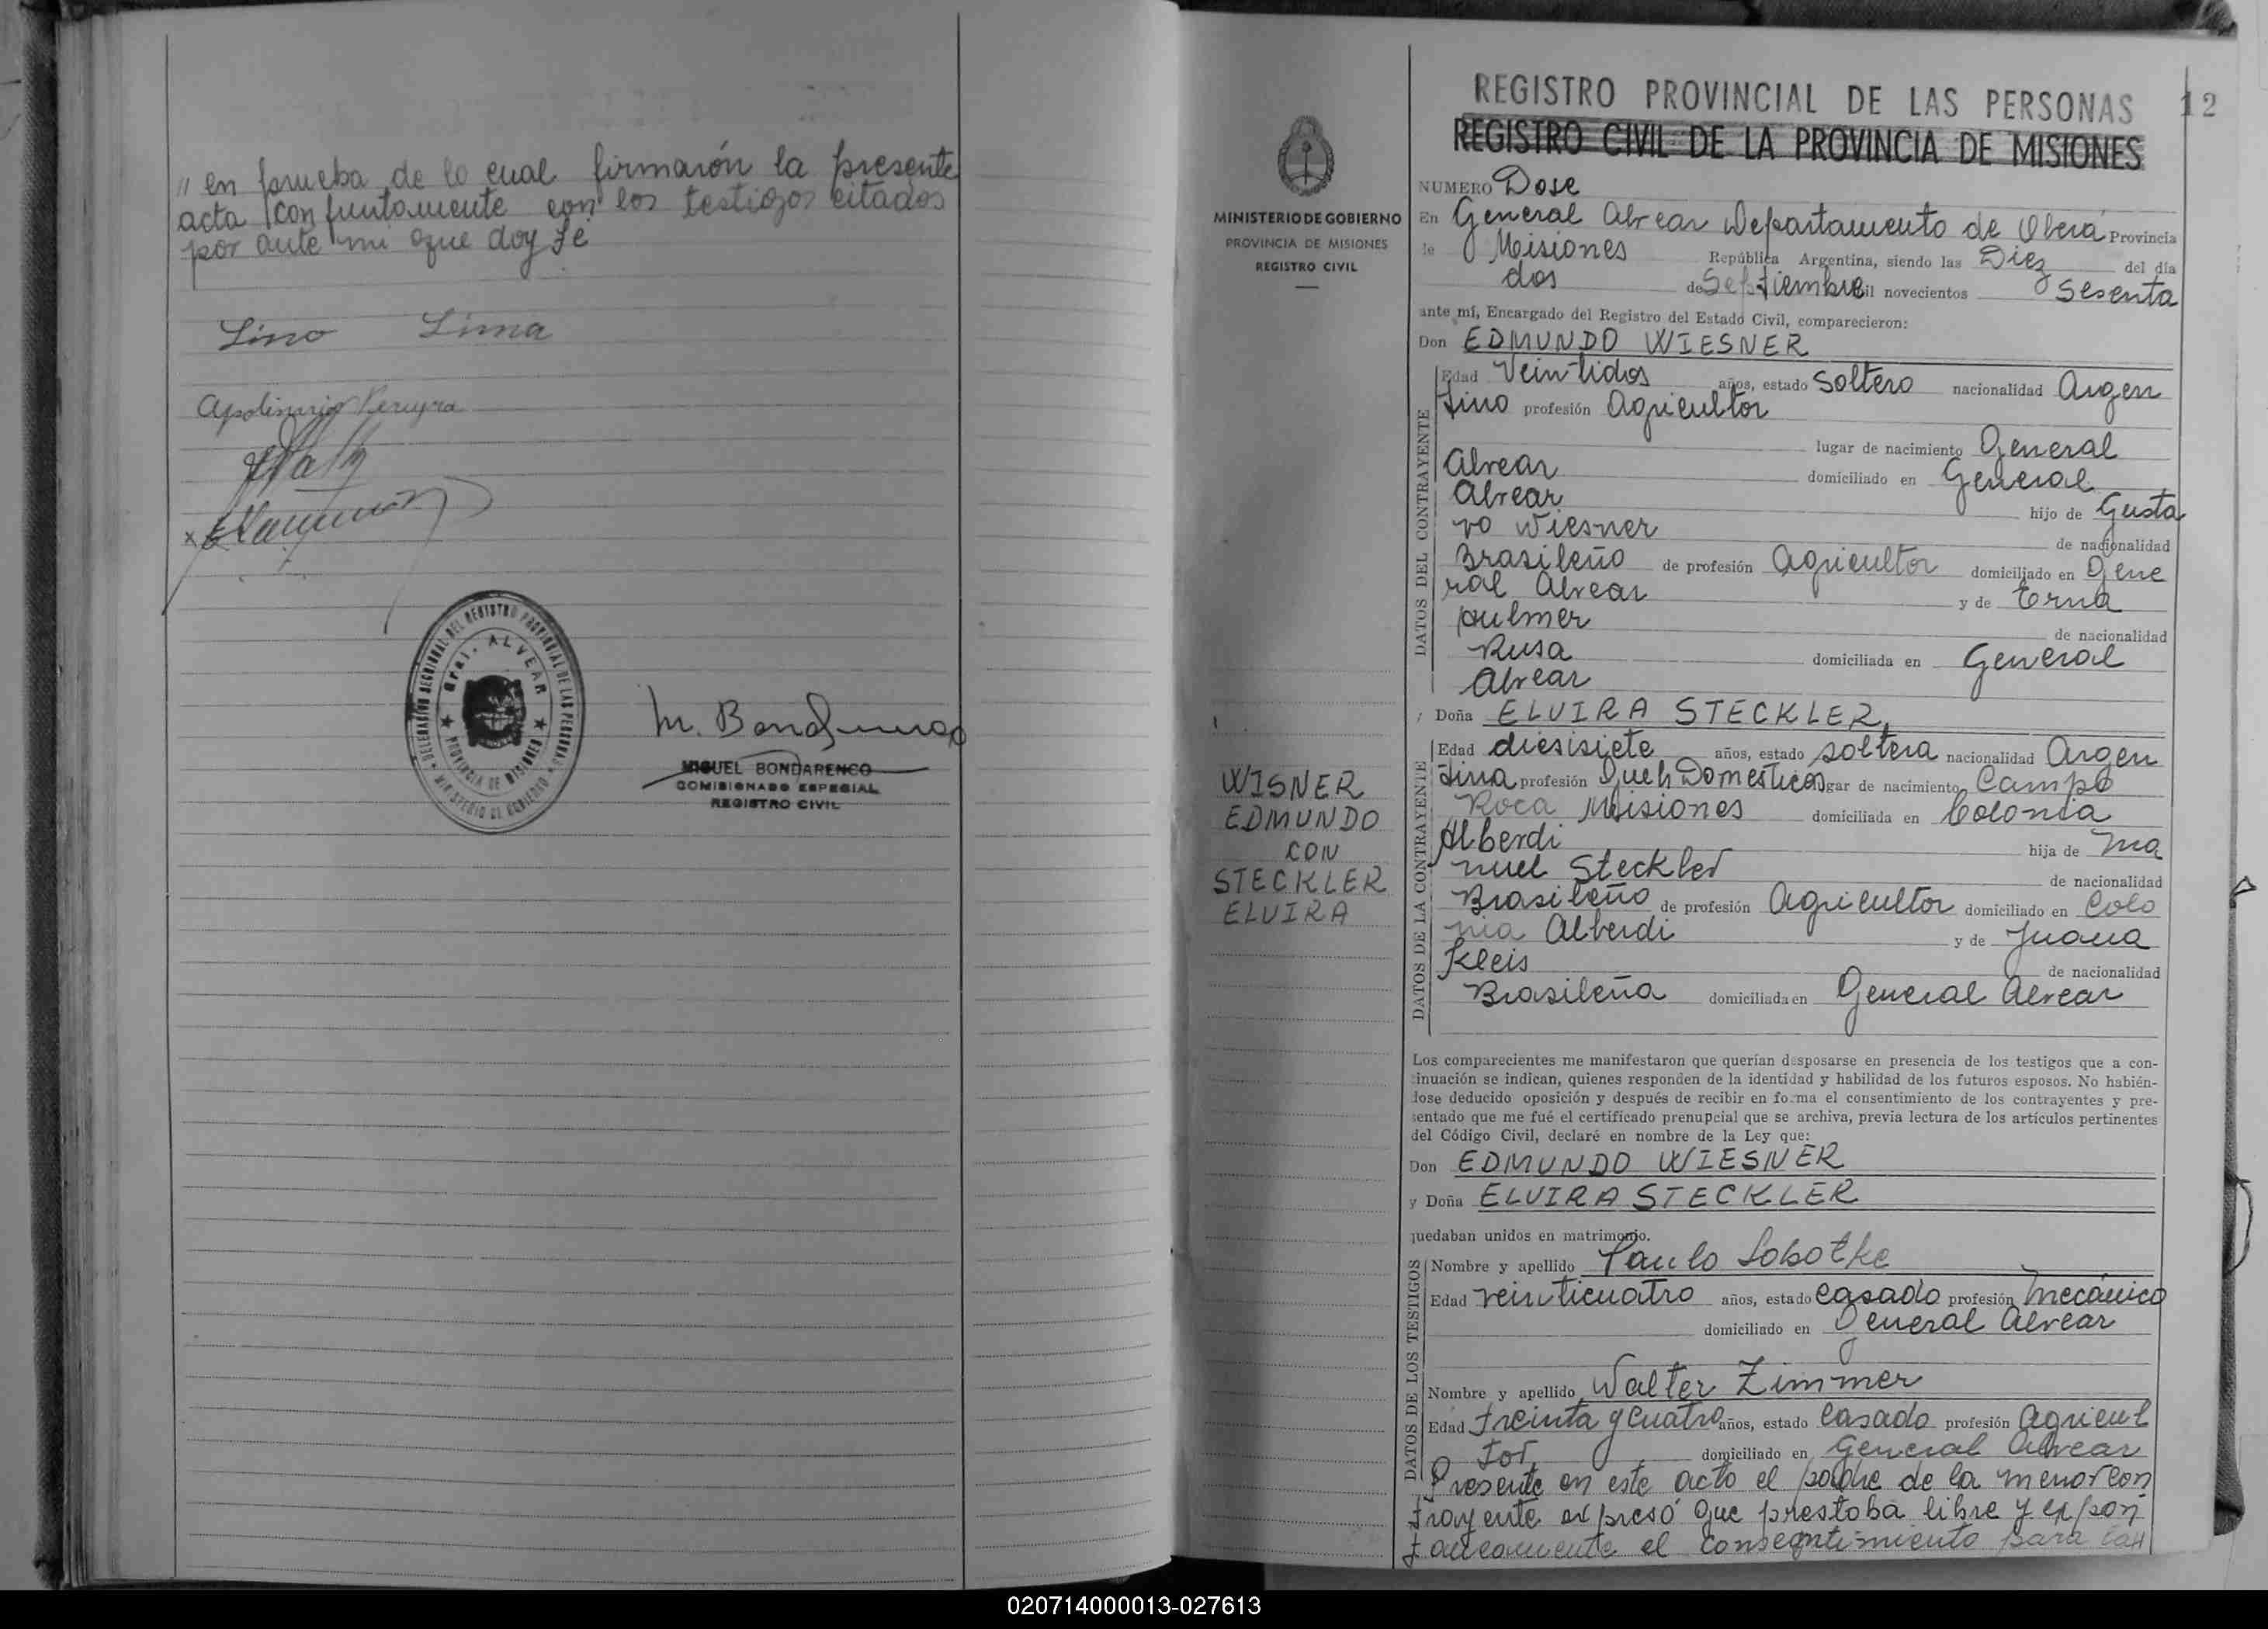 " en prueba de lo cual firmarón la presente
acta conjuntamente con los testigos citados
por ante mi que doy fé
Lino Lima
Apolinario Pereyra
DELEGACIÓN SECCIONAL DEL REGISTRO PROVINCIAL DE LAS PERSONAS
Gral. ALVEAR
PROVINCIA DE MISIONES
MINISTERIO DE GOBIERNO
M. Bondarenco
MIGUEL BONDARENCO
COMISIONADO ESPECIAL
REGISTRO CIVIL
MINISTERIO DE GOBIERNO
PROVINCIA DE MISIONES
REGISTRO CIVIL
WISNER
EDMUNDO
CON
STECKLER
ELVIRA
REGISTRO PROVINCIAL DE LAS PERSONAS 12
REGISTRO CIVIL DE LA PROVINCIA DE MISIONES
NUMERO Dose
En General Alvear Departamento de Oberá Provincia
de Misiones República Argentina, siendo las Diez del día
dos de Septiembre mil novecientos Sesenta
ante mí, Encargado del Registro del Estado Civil, comparecieron:
Don EDMUNDO WIESNER
DATOS DEL CONTRAYENTE
Edad Veintidos años, estado Soltero nacionalidad Argen
tino profesión Agricultor
lugar de nacimiento General
Alvear domiciliado en General
Alvear hijo de Gusta
vo Wiesner de nacionalidad
Brasileño de profesión Agricultor domiciliado en Gene
ral Alvear y de Erna
pulmer de nacionalidad
Rusa domiciliada en General
Alvear
Doña ELVIRA STECKLER,
DATOS DE LA CONTRAYENTE
Edad diesisiete años, estado soltera nacionalidad Argen
tina profesión Queh Domesticos lugar de nacimiento Campo
Roca Misiones domiciliada en Colonia
Alberdi hija de Ma
nuel Steckler de nacionalidad
Brasileño de profesión Agricultor domiciliado en Colo
nia Alberdi y de Juana
Kleis de nacionalidad
Brasileña domiciliada en General Alvear
Los comparecientes me manifestaron que querían desposarse en presencia de los testigos que a con-
tinuación se indican, quienes responden de la identidad y habilidad de los futuros esposos. No habién-
dose deducido oposición y después de recibir en forma el consentimiento de los contrayentes y pre-
sentado que me fué el certificado prenupcial que se archiva, previa lectura de los artículos pertinentes
del Código Civil, declaré en nombre de la Ley que:
Don EDMUNDO WIESNER
y Doña ELVIRA STECKLER
quedaban unidos en matrimonio.
DATOS DE LOS TESTIGOS
Nombre y apellido Paulo Sobotke
Edad veinticuatro años, estado casado profesión mecánico
domiciliado en General Alvear
Nombre y apellido Walter Zimmer
Edad treinta y cuatro años, estado casado profesión Agricul
tor domiciliado en General Alvear
Presente en este acto el padre de la menor con
trayente expresó que prestaba libre y espon
taneamente el consentimiento para
020714000013-027613